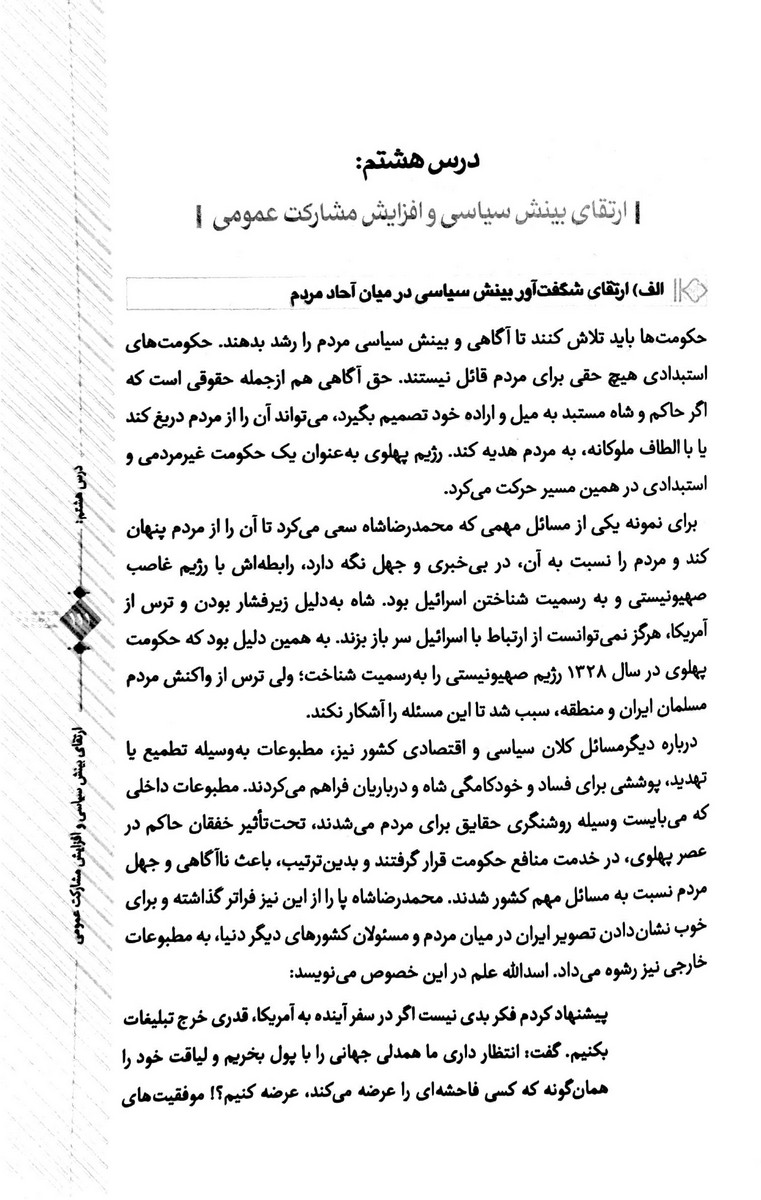 درس هشتم:
ارتقای بینش سیاسی و افزایش مشارکت عمومی
الف) ارتقای شگفت‌آور بینش سیاسی در میان آحاد مردم
حکومت‌ها باید تلاش کنند تا آگاهی و بینش سیاسی مردم را رشد بدهند. حکومت‌های
استبدادی هیچ حقی برای مردم قائل نیستند. حق آگاهی هم ازجمله حقوقی است که
اگر حاکم و شاه مستبد به میل و اراده خود تصمیم بگیرد، می‌تواند آن را از مردم دریغ کند
یا با الطاف ملوکانه، به مردم هدیه کند. رژیم پهلوی به‌عنوان یک حکومت غیرمردمی و
استبدادی در همین مسیر حرکت می‌کرد.
برای نمونه یکی از مسائل مهمی که محمدرضاشاه سعی می‌کرد تا آن را از مردم پنهان
کند و مردم را نسبت به آن، در بی‌خبری و جهل نگه دارد، رابطه‌اش با رژیم غاصب
صهیونیستی و به رسمیت شناختن اسرائیل بود. شاه به‌دلیل زیرفشار بودن و ترس از
آمریکا، هرگز نمی‌توانست از ارتباط با اسرائیل سر باز بزند. به همین دلیل بود که حکومت
پهلوی در سال ۱۳۲۸ رژیم صهیونیستی را به‌رسمیت شناخت؛ ولی ترس از واکنش مردم
مسلمان ایران و منطقه، سبب شد تا این مسئله را آشکار نکند.
درباره دیگرمسائل کلان سیاسی و اقتصادی کشور نیز، مطبوعات به‌وسیله تطمیع یا
تهدید، پوششی برای فساد و خودکامگی شاه و درباریان فراهم می‌کردند. مطبوعات داخلی
که می‌بایست وسیله روشنگری حقایق برای مردم می‌شدند، تحت‌تأثیر خفقان حاکم در
عصر پهلوی، در خدمت منافع حکومت قرار گرفتند و بدین‌ترتیب، باعث ناآگاهی و جهل
مردم نسبت به مسائل مهم کشور شدند. محمدرضاشاه پا را از این نیز فراتر گذاشته و برای
خوب نشان‌دادن تصویر ایران در میان مردم و مسئولان کشورهای دیگر دنیا، به مطبوعات
خارجی نیز رشوه می‌داد. اسدالله علم در این خصوص می‌نویسد:
پیشنهاد کردم فکر بدی نیست اگر در سفر آینده به آمریکا، قدری خرج تبلیغات
بکنیم. گفت: انتظار داری ما همدلی جهانی را با پول بخریم و لیاقت خود را
همان‌گونه که کسی فاحشه‌ای را عرضه می‌کند، عرضه کنیم؟! موفقیت‌های
درس هشتم:
ارتقای بینش سیاسی و افزایش مشارکت عمومی